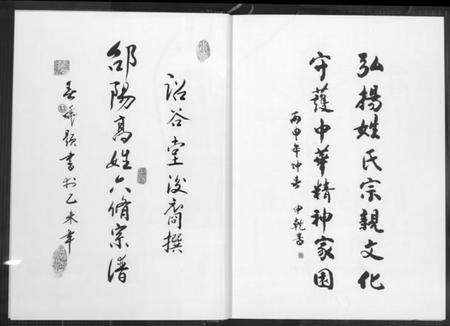 弘揚姓氏宗親文化
守護中華精神家园
丙申年仲春 申乾
詒谷堂後裔撰
邵陽高姓六修宗譜
題書於乙未年